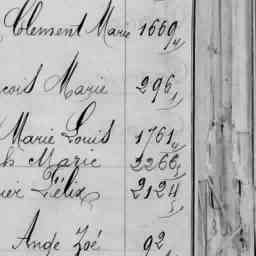 Clement Marie 1669
çois Marie 296
Marie Louis 1761
Marie 2266
ier Félix 2124
Ange Zoé 92